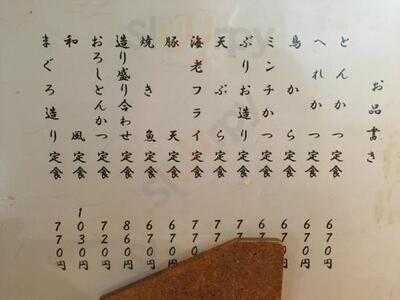 お品書き
とんかつ定食 670円
へれかつ定食 670円
鳥から定食
ミンチかつ定食
ぶりお造り定食
天ぷら定食
海老フライ定食
豚天定食 670円
焼き魚定食 670円
造り盛り合わせ定食 860円
おろしとんかつ定食 720円
和風定食 1030円
まぐろ造り定食 770円